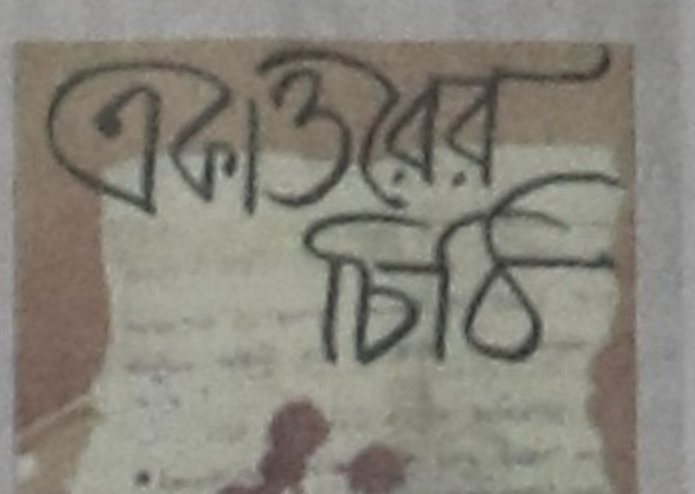 একাত্তরের
চিঠি